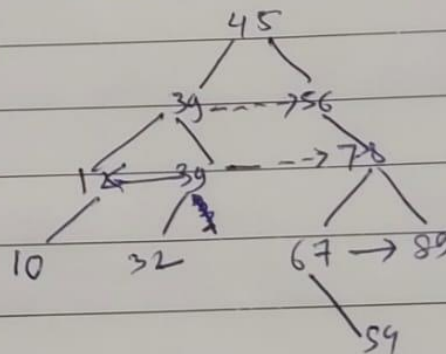 45
39 56
12 39 78
10 32 67 89
54